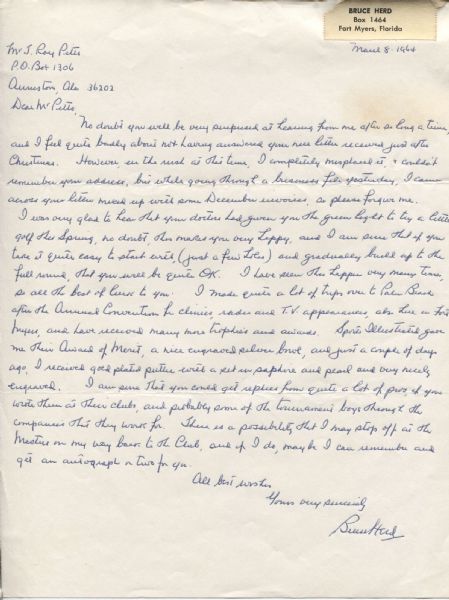 BRUCE HERD
Box 1464
Fort Myers, Florida
March 8 - 1964
Mr J. Roy Pitts
P.O. Box 1306
Anniston, Ala 36202
Dear Mr Pitts,
No doubt you will be very surprised at hearing from me after so long a time,
and I feel quite badly about not having answered your nice letter received just after
Christmas. However in the rush at the time, I completely misplaced it, & couldn't
remember your address, but while going through a business file yesterday, I came
across your letter mixed up with some December invoices, so please forgive me.
I was very glad to hear that your doctors had given you the green light to try a little
golf this Spring, no doubt, this makes you very happy, and I am sure that if you
take it quite easy to start with (just a few holes) and gradually build up to the
full round, that you will be quite OK. I have seen this happen very many times,
so all the best of luck to you. I made quite a lot of trips over to Palm Beach
after the Annual Convention for clinics, radio and T.V. appearances, also here in Fort
Myers, and have received many more trophies and awards. Sports Illustrated gave
me their Award of Merit, a nice engraved silver bowl, and just a couple of days
ago, I received gold plated putter with a set in sapphire and pearl and very nicely
engraved. I am sure that you could get replies from quite a lot of pros, if you
wrote them at their clubs, and probably some of the tournament boys through the
companies that they work for. There is a possibility that I may stop off at the
Masters on my way back to the Club, and if I do, maybe I can remember and
get an autograph or two for you.
All best wishes
Yours very sincerely
Bruce Herd